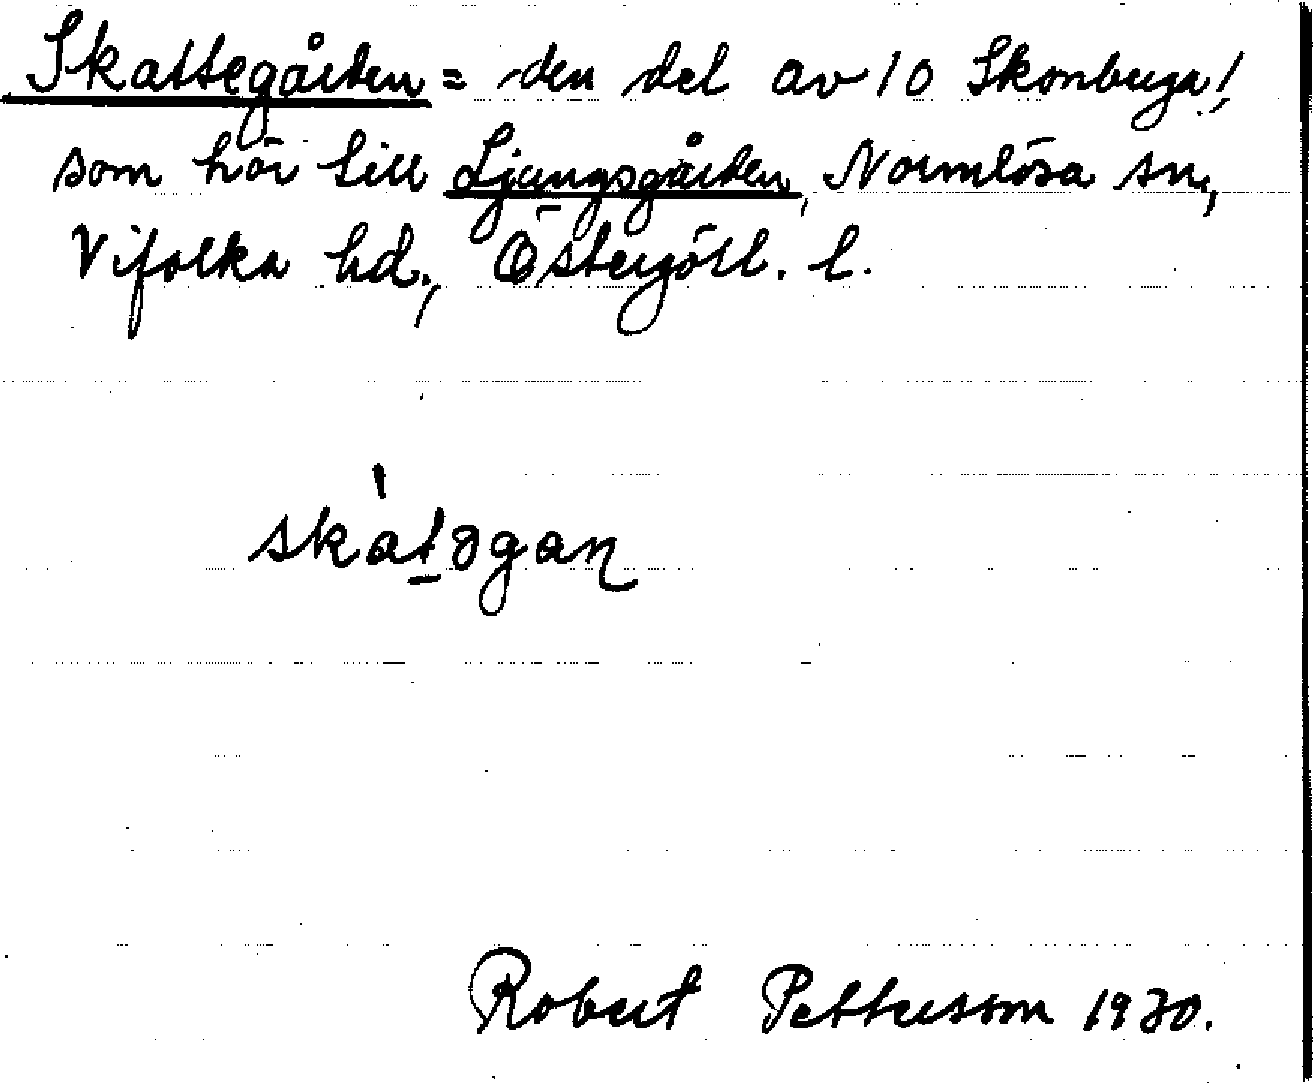 Skattegården = den del av 10 Skonberga!
som hör till Ljungsgården, Normlösa sn,
Vifolka hd., Östergötl. l.
skatəgan
Robert Pettersson 1930.